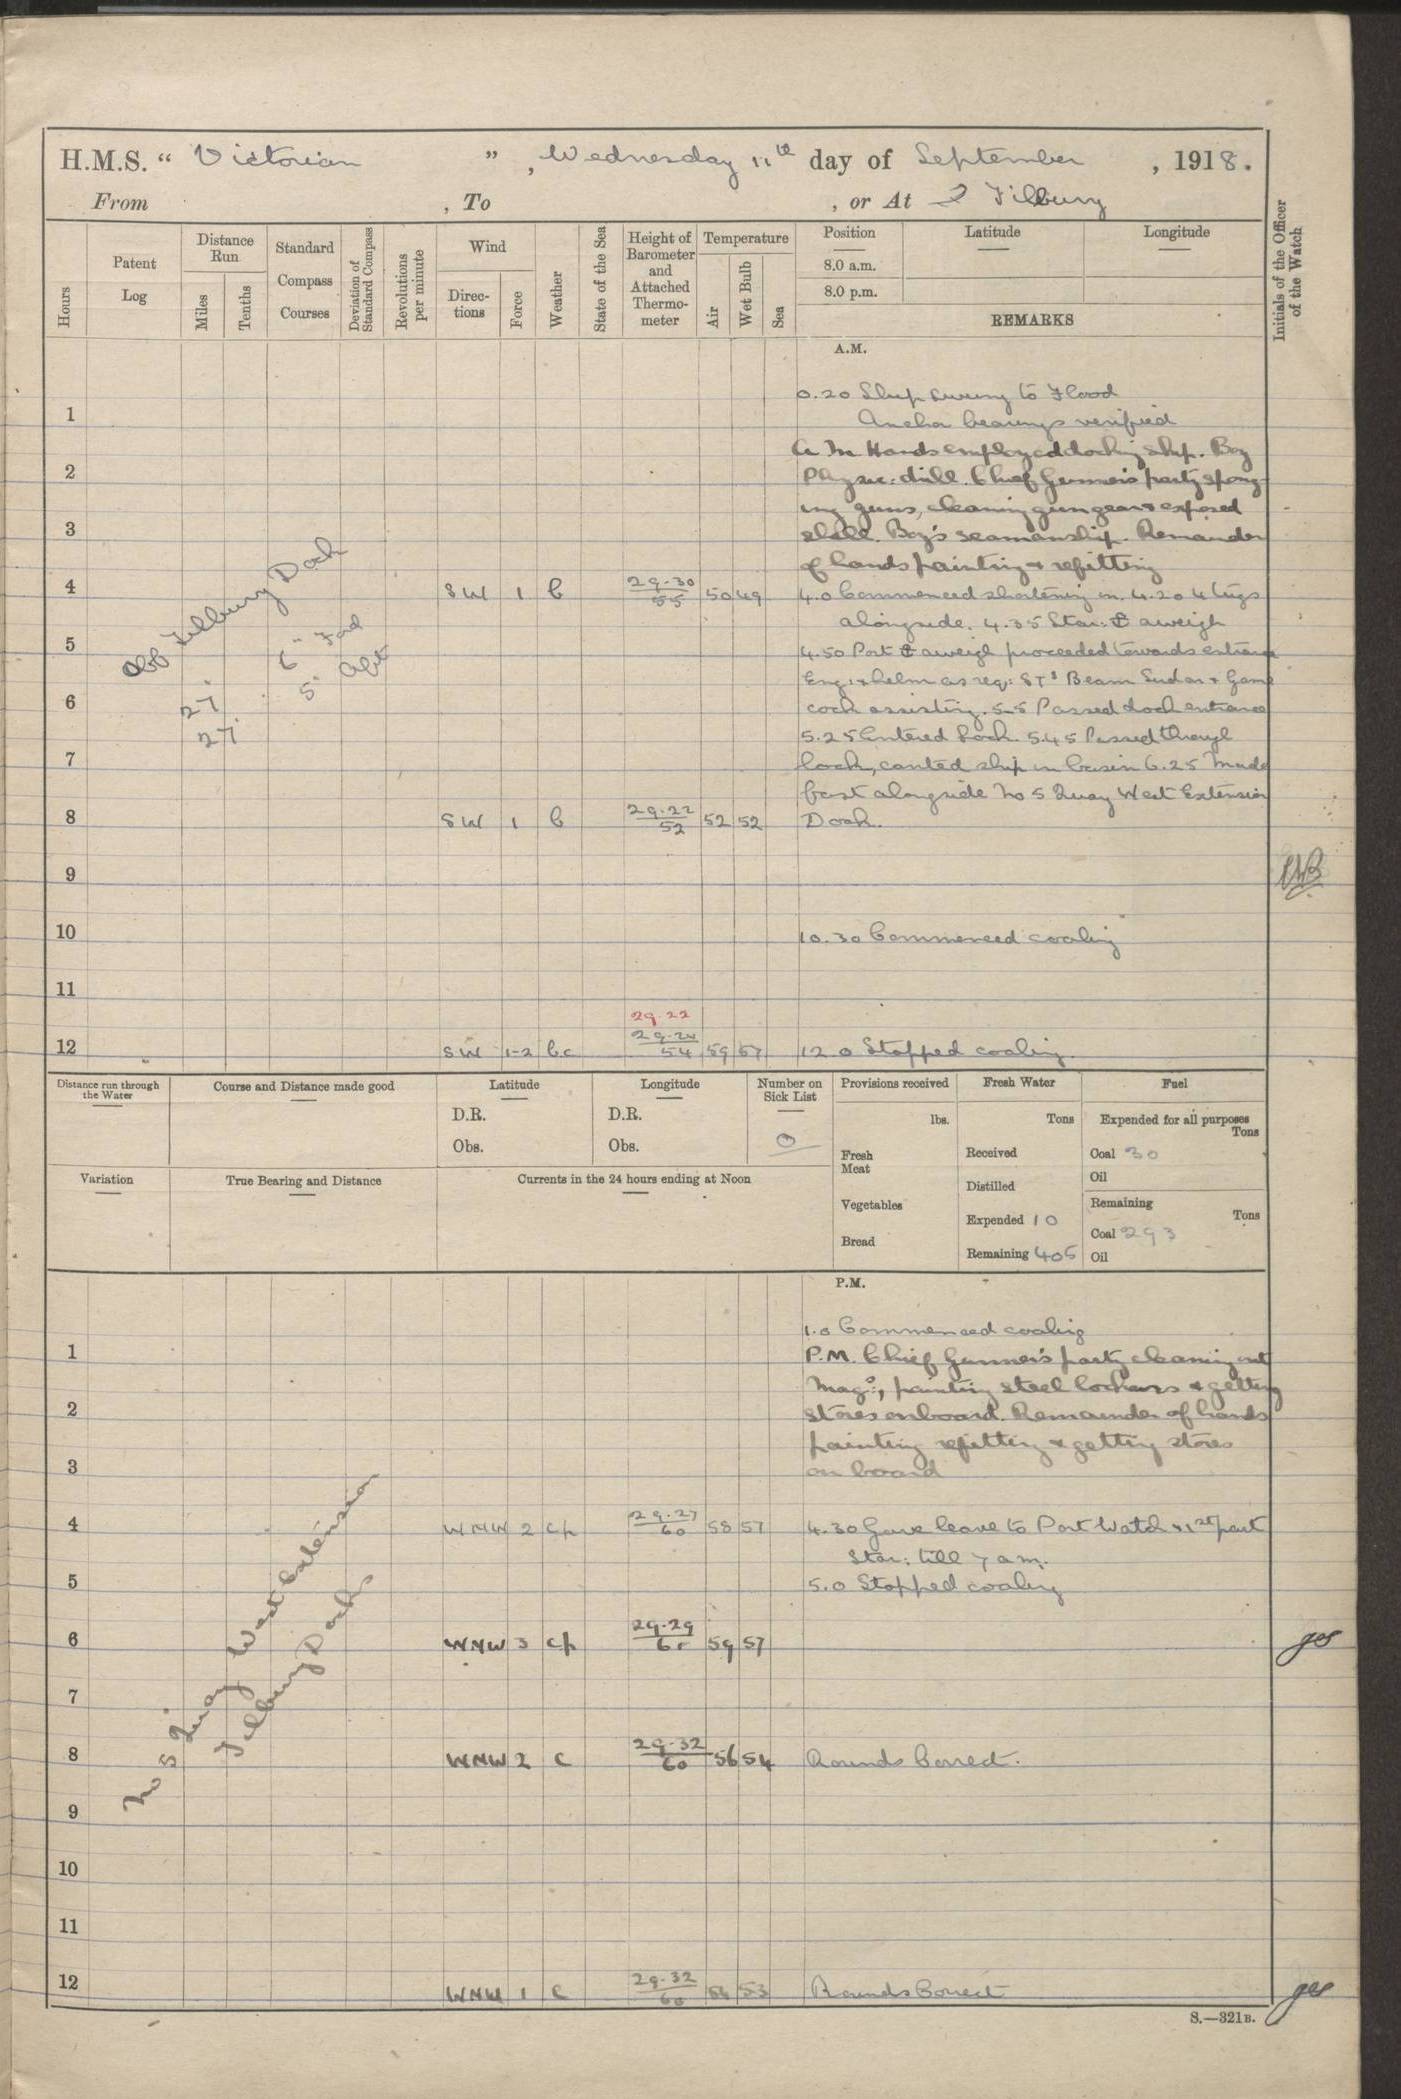 H.M.S. “ Victorian ”, Wednesday 11th day of September, 1918.
From , To , or At Tilbury
Hours
Patent Log
Distance Run
Miles
Tenths
Standard Compass Courses
Deviation of Standard Compass
Revolutions per minute
Wind
Direc-tions
Force
Weather
State of the Sea
Height of Barometer and Attached Thermo-meter
Temperature
Air
Wet Bulb
Sea
Position
8.0 a.m.
8.0 p.m.
Latitude
Longitude
REMARKS
Initials of the Officer of the Watch
A.M.
0.20 Ship swung to Flood
1
Anchor bearings verified
A M Hands employed docking ship. Boy
2
Physic: drill. Chief Gunner's party spong-
ing guns, cleaning gun gear & exposed
3
shell. Boy's seamanship. Remainder
of hands painting & refitting
4 SW 1 b 29.30 55 50 49 4.0 Commenced shortening in. 4.20 4 tugs
alongside. 4.35 Star: ⚓ aweigh
Off Tilbury Dock
5
4.50 Port ⚓ aweigh proceeded towards entrance
27' 6" Ford
27' 5" Aft
Eng: & helm as req: Sudan & Game
6
cock assisting. 5.5 Passed dock entrance
5.25 Entered Lock. 5.45 Passed through
7
lock, canted ship in basin 6.25 Made
fast alongside No 5 Quay West Extension
8 SW 1 b 29.22 52 52 52 Dock.
9
10 10.30 Commenced coaling
11
29.22
12 SW 1-2 bc 29.24 54 59 57 12.0 Stopped coaling.
Distance run through the Water
Course and Distance made good
Latitude
D.R.
Obs.
Longitude
D.R.
Obs.
Number on Sick List
0
Provisions received
lbs.
Fresh Meat
Vegetables
Bread
Fresh Water
Tons
Received
Distilled
Expended 10
Remaining 405
Fuel
Expended for all purposes
Tons
Coal 30
Oil
Remaining
Tons
Coal 293
Oil
Variation
True Bearing and Distance
Currents in the 24 hours ending at Noon
P.M.
1.0 Commenced coaling
1 P.M. Chief Gunner's party cleaning out
Mags:, painting steel lockers & getting
2 stores onboard. Remainder of hands
painting refitting & getting stores
3 on board
4 WNW 2 cp 29.27 60 58 57 4.30 Gave leave to Port Watch & 1st part
Star: till 7 am.
5 5.0 Stopped coaling
6 WNW 3 cp 29.29 59 57
No 5 Quay West Extension
Tilbury Docks
7
8 WNW 2 c 29.32 60 56 54 Rounds Correct.
9
10
11
12 WNW 1 c 29.32 60 53 Rounds Correct
S.—321B.